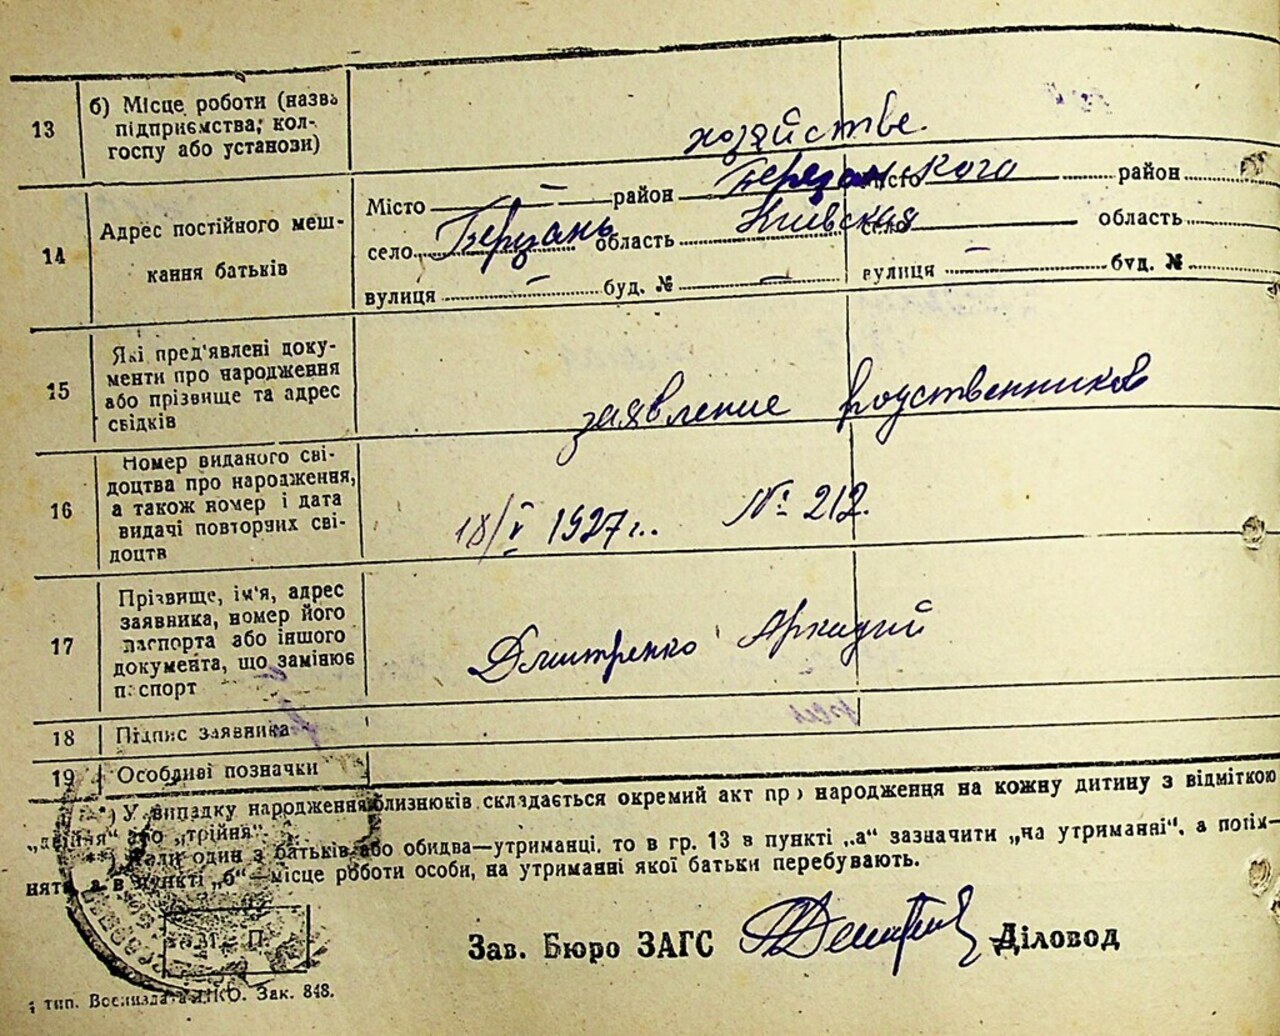 13
б) Місце роботи (назва
підприємства, кол-
госпу або установи)
хозяйстве.
14
Адрес постійного меш-
кання батьків
Місто район Березанского місто район
село Березань область Киевская село область
вулиця – буд. № – вулиця – буд. №
15
Які пред'явлені доку-
менти про народження
або прізвище та адрес
свідків
заявление родственников
16
Номер виданого сві-
доцтва про народження,
а також номер і дата
видачі повторних сві-
доцтв
18/V 1927 г. № 212.
17
Прізвище, ім'я, адрес
заявника, номер його
паспорта або іншого
документа, що замінює
паспорт
Дмитренко Аркадий
18
Підпис заявника
19
Особливі позначки
*) У випадку народження близнюків складається окремий акт про народження на кожну дитину з відміткою
„двійня" або „трійня".
**) Коли один з батьків або обидва—утриманці, то в гр. 13 в пункті „а" зазначити „на утриманні", а потім—
нята, а в пункті „б"—місце роботи особи, на утриманні якої батьки перебувають.
М. П.
Зав. Бюро ЗАГС Діловод
тип. Воениздата НКО. Зак. 848.